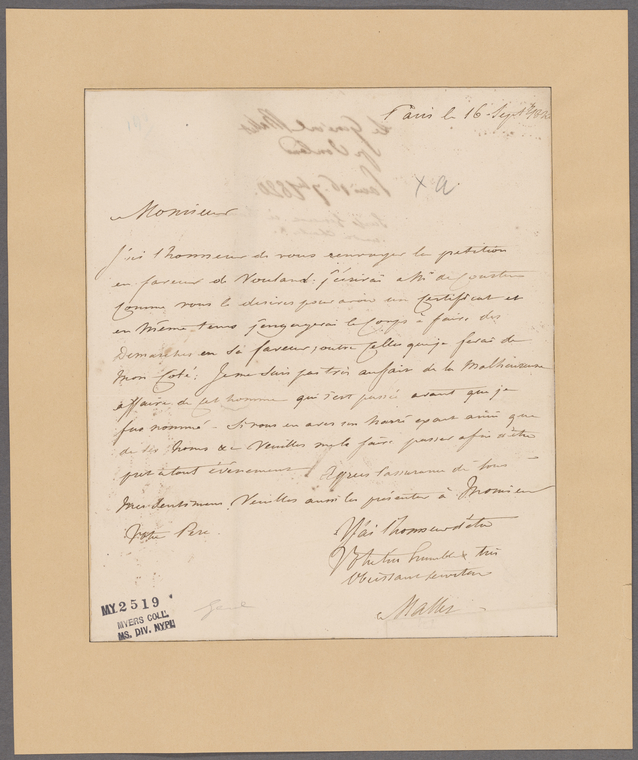 Paris le 16 Sept
x a.
Monsieur
J'ai l'honneur de vous renvoyer la petition
en faveur de Vouland. j'écrirai à M. de
Comme vous le desirez pour avoir un Certificat et
en meme tems j'engagerai le Corps à faire des
Demarches en Sa faveur, outre Celles que je ferai de
Mon Coté. Je ne suis pas très au fait de la Malheureuse
affaire de Cet homme qui s'est passée avant que je
fus nommé. Si vous en avez un narré exact ainsi que
de ses Noms &c Veuillez me le faire passer afin d'être
pret a tout événement. Agréez l'assurance de tous
Mes Sentimens, Veuillez aussi les présenter à Monsieur
Votre Pere.
J'ai l'honneur d'être
Votre très humble & très
Obeissant serviteur
Mallet
MY 2519
MYERS COLL.
MS. DIV. NYPL